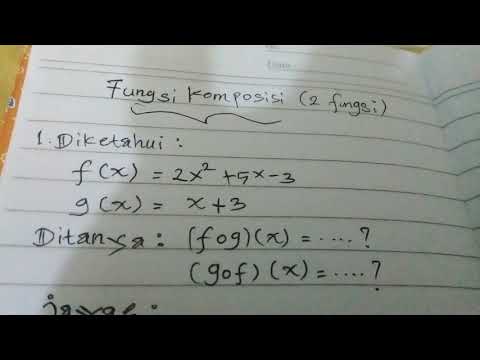 Fungsi Komposisi (2 fungsi)
1. Diketahui :
f(x) = 2x² + 5x - 3
g(x) = x + 3
Ditanya : (fog)(x) = ....?
(gof)(x) = ....?